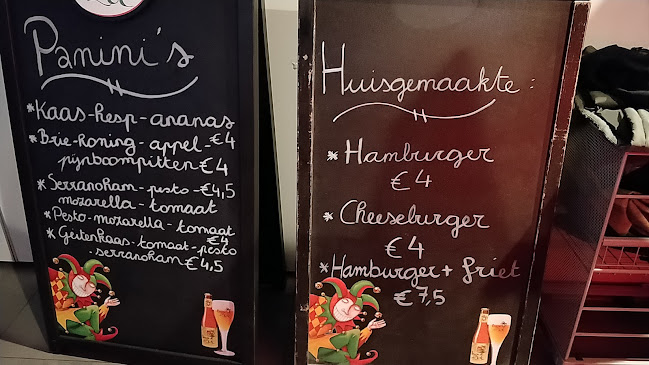 Panini's
*Kaas-hesp-ananas
€4
*Brie-honing-appel-
pijnboompitten €4
*Serranoham-pesto-€4,5
mozarella-tomaat
*Pesto-mozarella-tomaat
€4
*Geitenkaas-tomaat-pesto
-serranoham €4,5
Huisgemaakte:
*Hamburger
€4
*Cheeseburger
€4
*Hamburger + friet
€7,5